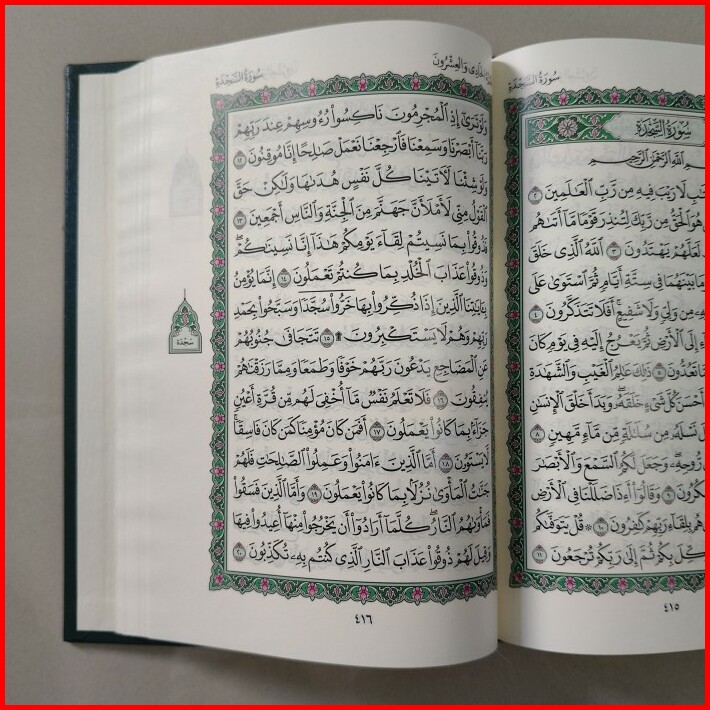 سُورَةُ السَّجْدَةِ
سُورَةُ السَّجْدَةِ
ٱللَّهِ ٱلرَّحْمَٰنِ ٱلرَّحِيمِ
لَا رَيْبَ فِيهِ مِن رَّبِّ ٱلْعَٰلَمِينَ ٢
هُوَ ٱلْحَقُّ مِن رَّبِّكَ لِتُنذِرَ قَوْمًا مَّآ أَتَىٰهُم
لَعَلَّهُمْ يَهْتَدُونَ ٣ ٱللَّهُ ٱلَّذِى خَلَقَ
وَمَا بَيْنَهُمَا فِى سِتَّةِ أَيَّامٍ ثُمَّ ٱسْتَوَىٰ عَلَى
مِن وَلِىٍّ وَلَا شَفِيعٍ ۚ أَفَلَا تَتَذَكَّرُونَ ٤
إِلَى ٱلْأَرْضِ ثُمَّ يَعْرُجُ إِلَيْهِ فِى يَوْمٍ كَانَ
تَعُدُّونَ ٥ ذَٰلِكَ عَٰلِمُ ٱلْغَيْبِ وَٱلشَّهَٰدَةِ
أَحْسَنَ كُلَّ شَىْءٍ خَلَقَهُۥ ۖ وَبَدَأَ خَلْقَ ٱلْإِنسَٰنِ
نَسْلَهُۥ مِن سُلَٰلَةٍ مِّن مَّآءٍ مَّهِينٍ ٨
رُّوحِهِۦ ۖ وَجَعَلَ لَكُمُ ٱلسَّمْعَ وَٱلْأَبْصَٰرَ
٩ وَقَالُوٓا۟ أَءِذَا ضَلَلْنَا فِى ٱلْأَرْضِ
هُم بِلِقَآءِ رَبِّهِمْ كَٰفِرُونَ ١٠ ۞ قُلْ يَتَوَفَّىٰكُم
بِكُمْ ثُمَّ إِلَىٰ رَبِّكُمْ تُرْجَعُونَ ١١
٤١٥
وَٱلْعِشْرُونَ
سُورَةُ السَّجْدَةِ
وَلَوْ تَرَىٰٓ إِذِ ٱلْمُجْرِمُونَ نَاكِسُوا۟ رُءُوسِهِمْ عِندَ رَبِّهِمْ
رَبَّنَآ أَبْصَرْنَا وَسَمِعْنَا فَٱرْجِعْنَا نَعْمَلْ صَٰلِحًا إِنَّا مُوقِنُونَ ١٢
وَلَوْ شِئْنَا لَءَاتَيْنَا كُلَّ نَفْسٍ هُدَىٰهَا وَلَٰكِنْ حَقَّ
ٱلْقَوْلُ مِنِّى لَأَمْلَأَنَّ جَهَنَّمَ مِنَ ٱلْجِنَّةِ وَٱلنَّاسِ أَجْمَعِينَ ١٣
فَذُوقُوا۟ بِمَا نَسِيتُمْ لِقَآءَ يَوْمِكُمْ هَٰذَآ إِنَّا نَسِينَٰكُمْ ۖ
وَذُوقُوا۟ عَذَابَ ٱلْخُلْدِ بِمَا كُنتُمْ تَعْمَلُونَ ١٤ إِنَّمَا يُؤْمِنُ
بِـَٔايَٰتِنَا ٱلَّذِينَ إِذَا ذُكِّرُوا۟ بِهَا خَرُّوا۟ سُجَّدًا وَسَبَّحُوا۟ بِحَمْدِ
رَبِّهِمْ وَهُمْ لَا يَسْتَكْبِرُونَ ۩ ١٥ تَتَجَافَىٰ جُنُوبُهُمْ
سَجْدَة
عَنِ ٱلْمَضَاجِعِ يَدْعُونَ رَبَّهُمْ خَوْفًا وَطَمَعًا وَمِمَّا رَزَقْنَٰهُمْ
يُنفِقُونَ ١٦ فَلَا تَعْلَمُ نَفْسٌ مَّآ أُخْفِىَ لَهُم مِّن قُرَّةِ أَعْيُنٍ
جَزَآءًۢ بِمَا كَانُوا۟ يَعْمَلُونَ ١٧ أَفَمَن كَانَ مُؤْمِنًا كَمَن كَانَ فَاسِقًا ۚ
لَّا يَسْتَوُۥنَ ١٨ أَمَّا ٱلَّذِينَ ءَامَنُوا۟ وَعَمِلُوا۟ ٱلصَّٰلِحَٰتِ فَلَهُمْ
جَنَّٰتُ ٱلْمَأْوَىٰ نُزُلًۢا بِمَا كَانُوا۟ يَعْمَلُونَ ١٩ وَأَمَّا ٱلَّذِينَ فَسَقُوا۟
فَمَأْوَىٰهُمُ ٱلنَّارُ ۖ كُلَّمَآ أَرَادُوٓا۟ أَن يَخْرُجُوا۟ مِنْهَآ أُعِيدُوا۟ فِيهَا
وَقِيلَ لَهُمْ ذُوقُوا۟ عَذَابَ ٱلنَّارِ ٱلَّذِى كُنتُم بِهِۦ تُكَذِّبُونَ ٢٠
٤١٦